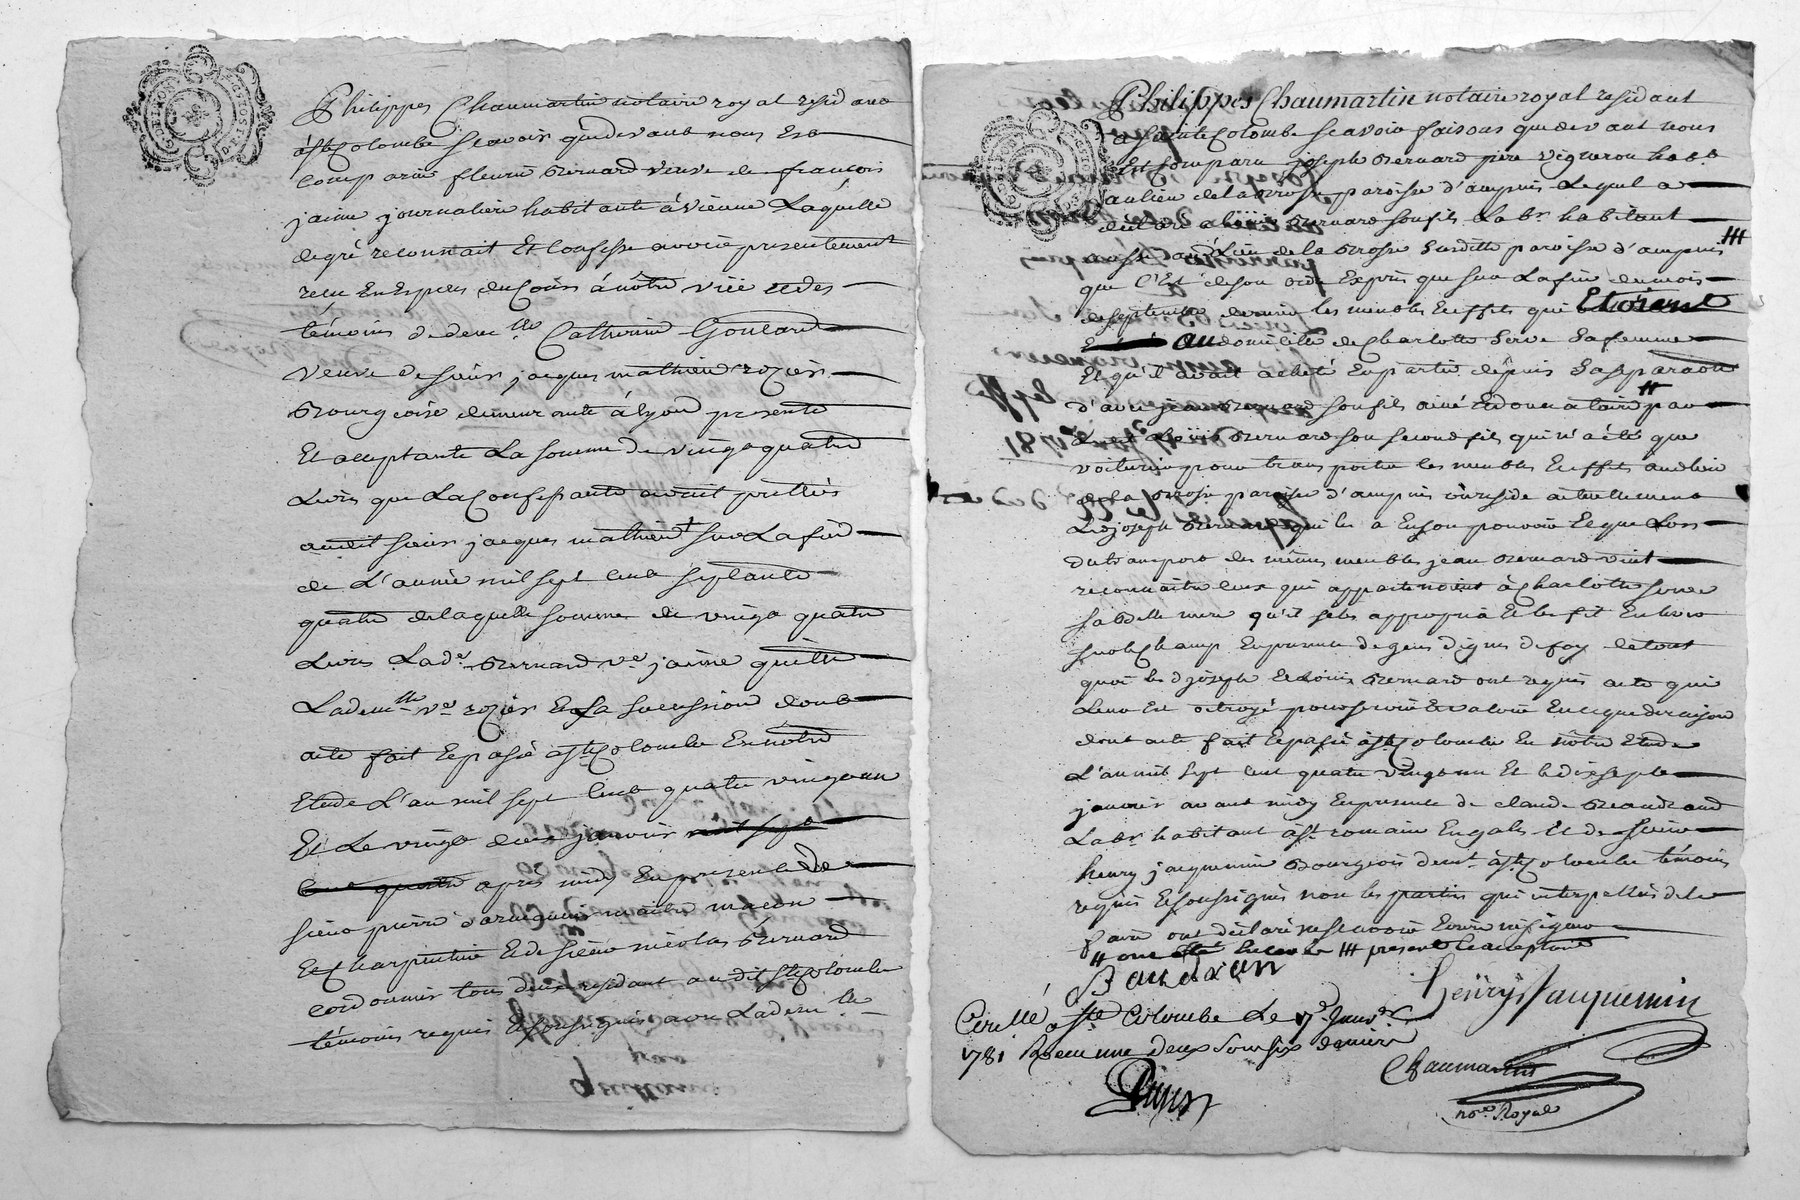 Philippes Chaumartin notaire royal residant
à Ste Colombe scavoir que devant nous Est
comparüe fleurie Bernard veuve de francois
jaime journaliere habitante à vienne Laquelle
de gré reconnait Et Confesse avoir presentement
recu En Especes du Cours à nôtre vüe et des
témoins de demlle Catherine Goutard
veuve de sieur jacques mathieu rozier
Bourgeoise demeurante à lyon presente
Et acceptante La somme de vingt quatre
Livres que La Confessante avoit prettés
audit sieur jacques mathieu sur La fin
de L'année mil sept cent septante
quatre de laquelle somme de vingt quatre
Livres Lade Bernard ve jaime quitte
La demlle ve rozier Et sa succession dont
acte fait Et passé à Ste Colombe En nôtre
Etude L'an mil sept cent quatre vingt un
Et Le vingt deux janvier mil sept
cent quatre apres midy En presence de
sieur pierre maitre macon
Et Charpentier Et de sieur nicolas Bernard
cordonnier tous deux residant audit Ste Colombe
témoins requis Et soussignés avec La demlle
Philippes Chaumartin notaire royal residant
à Sainte Colombe scavoir faisons que devant nous
Est Comparu joseph Bernard pere vigneron habt
au lieu de la Brosse paroisse d'ampuis Lequel a
déclaré à Loüis Bernard son fils Labr habitant
aud Lieu de la Brosse Susditte paroisse d'ampuis ///
que C'Est de son ordre Exprés que sur La fin du mois
de septembre dernier les meubles Et effets qui Etoient
au domicille de Charlotte Serve Sa femme
Et qu'il avait acheté En partie depuis Sa
d'avec jean Bernard son fils ainé Et donc a faire par //
Loüis Bernard son second fils qui n'a été que
voiturier pour transporter les meubles Et effets au dlieu
de la Brosse paroisse d'ampuis où reside actuellement
Led joseph Bernard qui les a En son pouvoir Et que Lors
du transport des mêmes meubles jean Bernard vint
reconnaitre ceux qui appartenoint à Charlotte Serve
sa Belle mere qu'il se les appropria Et les fit
sur le Champ En presence de gens dignes de foy de tout
quoi les d joseph Et Loüis Bernard ont requis acte qui
Leur Est octroyé pour servir Et valoir En ce que de raison
dont acte fait Et passé à Ste Colombe En nôtre Etude
L'an mil sept cent quatre vingt un Et le dix sept
janvier avant midy En presence de claude Beaudrand
Labr habitant à St romain En gals Et de sieur
henry jacquemin Bourgeois demt à Ste Colombe témoins
requis Et soussignés non les parties qui interpellés de le
faire ont déclaré ne scavoir Ecrire ni signer
// /// present Et acceptant
Baudran
henry Jacquemin
Contrôllé a Ste Colombe Le 17e Janver
1781 Recu une deux sous six deniers
Chaumartin
nore Royal